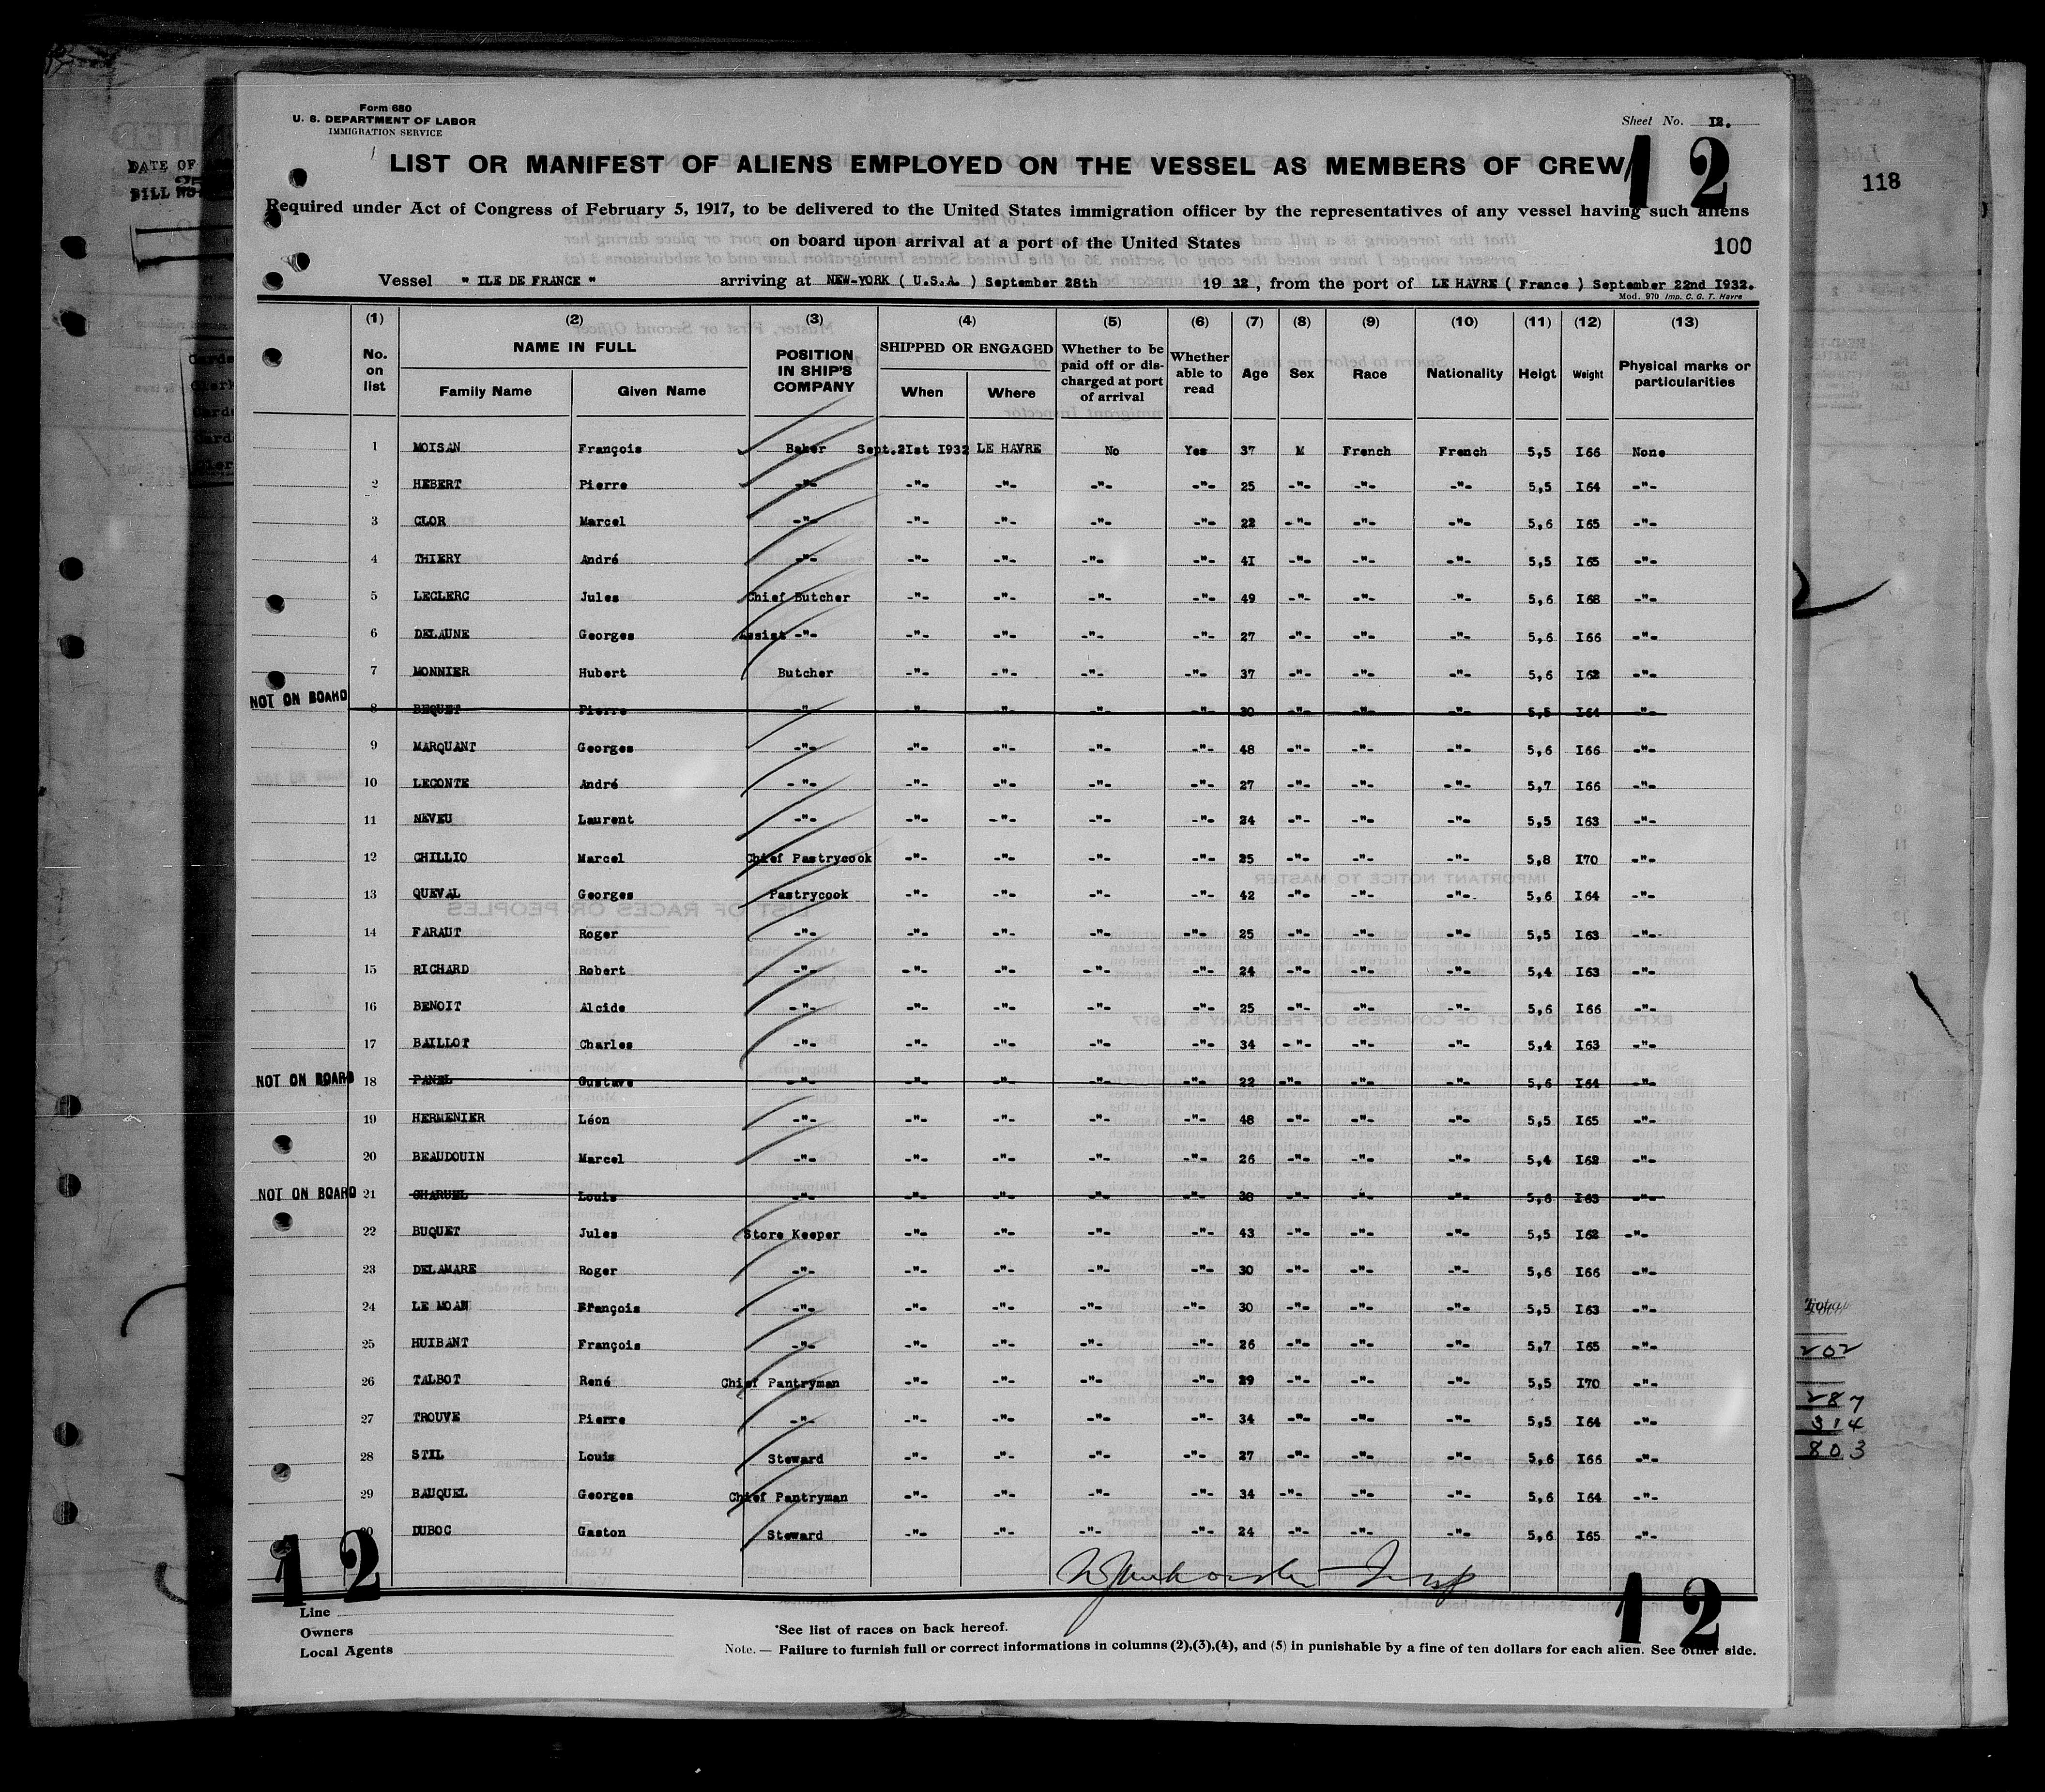 Form 680
U. S. DEPARTMENT OF LABOR
IMMIGRATION SERVICE
Sheet No. I2.
LIST OR MANIFEST OF ALIENS EMPLOYED ON THE VESSEL AS MEMBERS OF CREW
12
118
Required under Act of Congress of February 5, 1917, to be delivered to the United States immigration officer by the representatives of any vessel having such aliens
on board upon arrival at a port of the United States
100
Vessel " ILE DE FRANCE " arriving at NEW-YORK ( U.S.A. ) September 28th 19 32, from the port of LE HAVRE ( France ) September 22nd I932.
Mod. 970 Imp. C. G. T. Havre
(1) (2) (3) (4) (5) (6) (7) (8) (9) (10) (11) (12) (13)
No. on list NAME IN FULL Family Name Given Name POSITION IN SHIP'S COMPANY SHIPPED OR ENGAGED When Where Whether to be paid off or discharged at port of arrival Whether able to read Age Sex Race Nationality Helgt Weight Physical marks or particularities
1 MOISAN François Baker Sept.2Ist I932 LE HAVRE No Yes 37 M French French 5,5 I66 None
2 HEBERT Pierre -"- -"- -"- -"- -"- 25 -"- -"- -"- 5,5 I64 -"-
3 CLOR Marcel -"- -"- -"- -"- -"- 22 -"- -"- -"- 5,6 I65 -"-
4 THIERY André -"- -"- -"- -"- -"- 4I -"- -"- -"- 5,5 I65 -"-
5 LECLERC Jules Chief Butcher -"- -"- -"- -"- 49 -"- -"- -"- 5,6 I68 -"-
6 DELAUNE Georges Assist -"- -"- -"- -"- -"- 27 -"- -"- -"- 5,6 I66 -"-
7 MONNIER Hubert Butcher -"- -"- -"- -"- 37 -"- -"- -"- 5,6 I62 -"-
NOT ON BOARD 8 BEQUET Pierre -"- -"- -"- -"- -"- 30 -"- -"- -"- 5,5 I64 -"-
9 MARQUANT Georges -"- -"- -"- -"- -"- 48 -"- -"- -"- 5,6 I66 -"-
10 LECONTE André -"- -"- -"- -"- -"- 27 -"- -"- -"- 5,7 I66 -"-
11 NEVEU Laurent -"- -"- -"- -"- -"- 24 -"- -"- -"- 5,5 I63 -"-
12 CHILLIO Marcel Chief Pastrycook -"- -"- -"- -"- 25 -"- -"- -"- 5,8 I70 -"-
13 QUEVAL Georges Pastrycook -"- -"- -"- -"- 42 -"- -"- -"- 5,6 I64 -"-
14 FARAUT Roger -"- -"- -"- -"- -"- 25 -"- -"- -"- 5,5 I63 -"-
15 RICHARD Robert -"- -"- -"- -"- -"- 24 -"- -"- -"- 5,4 I63 -"-
16 BENOIT Alcide -"- -"- -"- -"- -"- 25 -"- -"- -"- 5,6 I66 -"-
17 BAILLOT Charles -"- -"- -"- -"- -"- 34 -"- -"- -"- 5,4 I63 -"-
NOT ON BOARD 18 PANEL Gustave -"- -"- -"- -"- -"- 22 -"- -"- -"- 5,6 I64 -"-
19 HERMENIER Léon -"- -"- -"- -"- -"- 48 -"- -"- -"- 5,5 I65 -"-
20 BEAUDOUIN Marcel -"- -"- -"- -"- -"- 26 -"- -"- -"- 5,4 I62 -"-
NOT ON BOARD 21 CHARUEL Louis -"- -"- -"- -"- -"- 38 -"- -"- -"- 5,6 I63 -"-
22 BUQUET Jules Store Keeper -"- -"- -"- -"- 43 -"- -"- -"- 5,5 I62 -"-
23 DELAMARE Roger -"- -"- -"- -"- -"- 30 -"- -"- -"- 5,6 I66 -"-
24 LE MOAN François -"- -"- -"- -"- -"- 30 -"- -"- -"- 5,5 I63 -"-
25 HUIBANT François -"- -"- -"- -"- -"- 26 -"- -"- -"- 5,7 I65 -"-
26 TALBOT René Chief Pantryman -"- -"- -"- -"- 29 -"- -"- -"- 5,5 I70 -"-
27 TROUVE Pierre -"- -"- -"- -"- -"- 34 -"- -"- -"- 5,5 I64 -"-
28 STIL Louis Steward -"- -"- -"- -"- 27 -"- -"- -"- 5,6 I66 -"-
29 BAUQUEL Georges Chief Pantryman -"- -"- -"- -"- 34 -"- -"- -"- 5,6 I64 -"-
30 DUBOC Gaston Steward -"- -"- -"- -"- 24 -"- -"- -"- 5,6 I65 -"-
202
287
314
803
12
12
Line
Owners
Local Agents
*See list of races on back hereof.
Note. — Failure to furnish full or correct informations in columns (2),(3),(4), and (5) in punishable by a fine of ten dollars for each alien. See other side.
DATE OF
BILL NO.